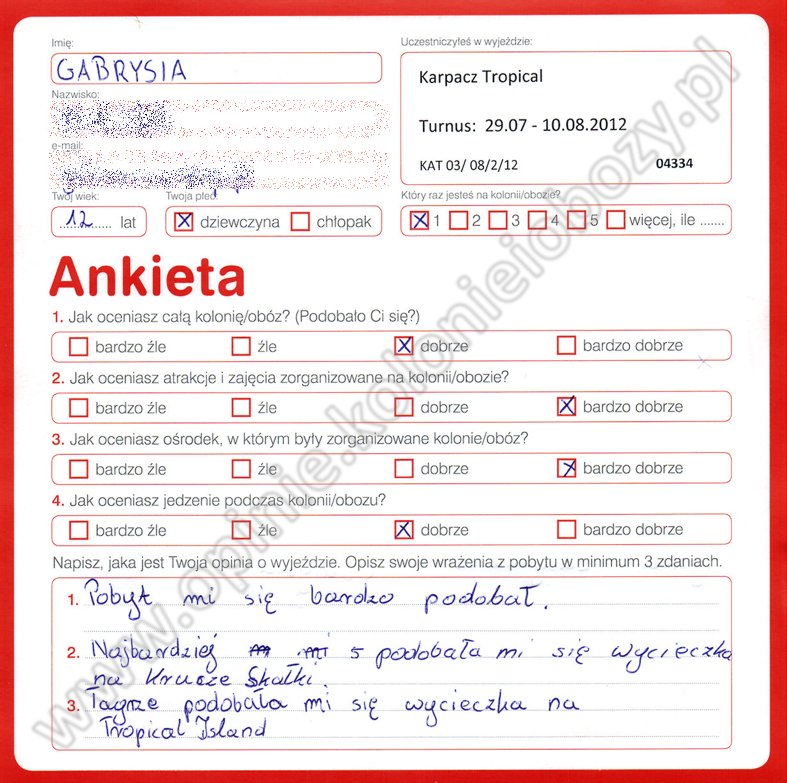 Imię:
GABRYSIA
Nazwisko:
e-mail:
Twój wiek:
12 lat
Twoja płeć:
dziewczyna chłopak
Uczestniczyłeś w wyjeździe:
Karpacz Tropical
Turnus: 29.07 - 10.08.2012
KAT 03/ 08/2/12 04334
Który raz jesteś na kolonii/obozie?
1 2 3 4 5 więcej, ile .......
Ankieta
1. Jak oceniasz całą kolonię/obóz? (Podobało Ci się?)
bardzo źle źle dobrze bardzo dobrze
2. Jak oceniasz atrakcje i zajęcia zorganizowane na kolonii/obozie?
bardzo źle źle dobrze bardzo dobrze
3. Jak oceniasz ośrodek, w którym były zorganizowane kolonie/obóz?
bardzo źle źle dobrze bardzo dobrze
4. Jak oceniasz jedzenie podczas kolonii/obozu?
bardzo źle źle dobrze bardzo dobrze
Napisz, jaka jest Twoja opinia o wyjeździe. Opisz swoje wrażenia z pobytu w minimum 3 zdaniach.
1. Pobyt mi się bardzo podobał.
2. Najbardziej podobała mi się wycieczka
na Krucze Skałki.
3. Tagrze podobała mi się wycieczka na
Tropical Island
www.opinie.kolonieiobozy.pl